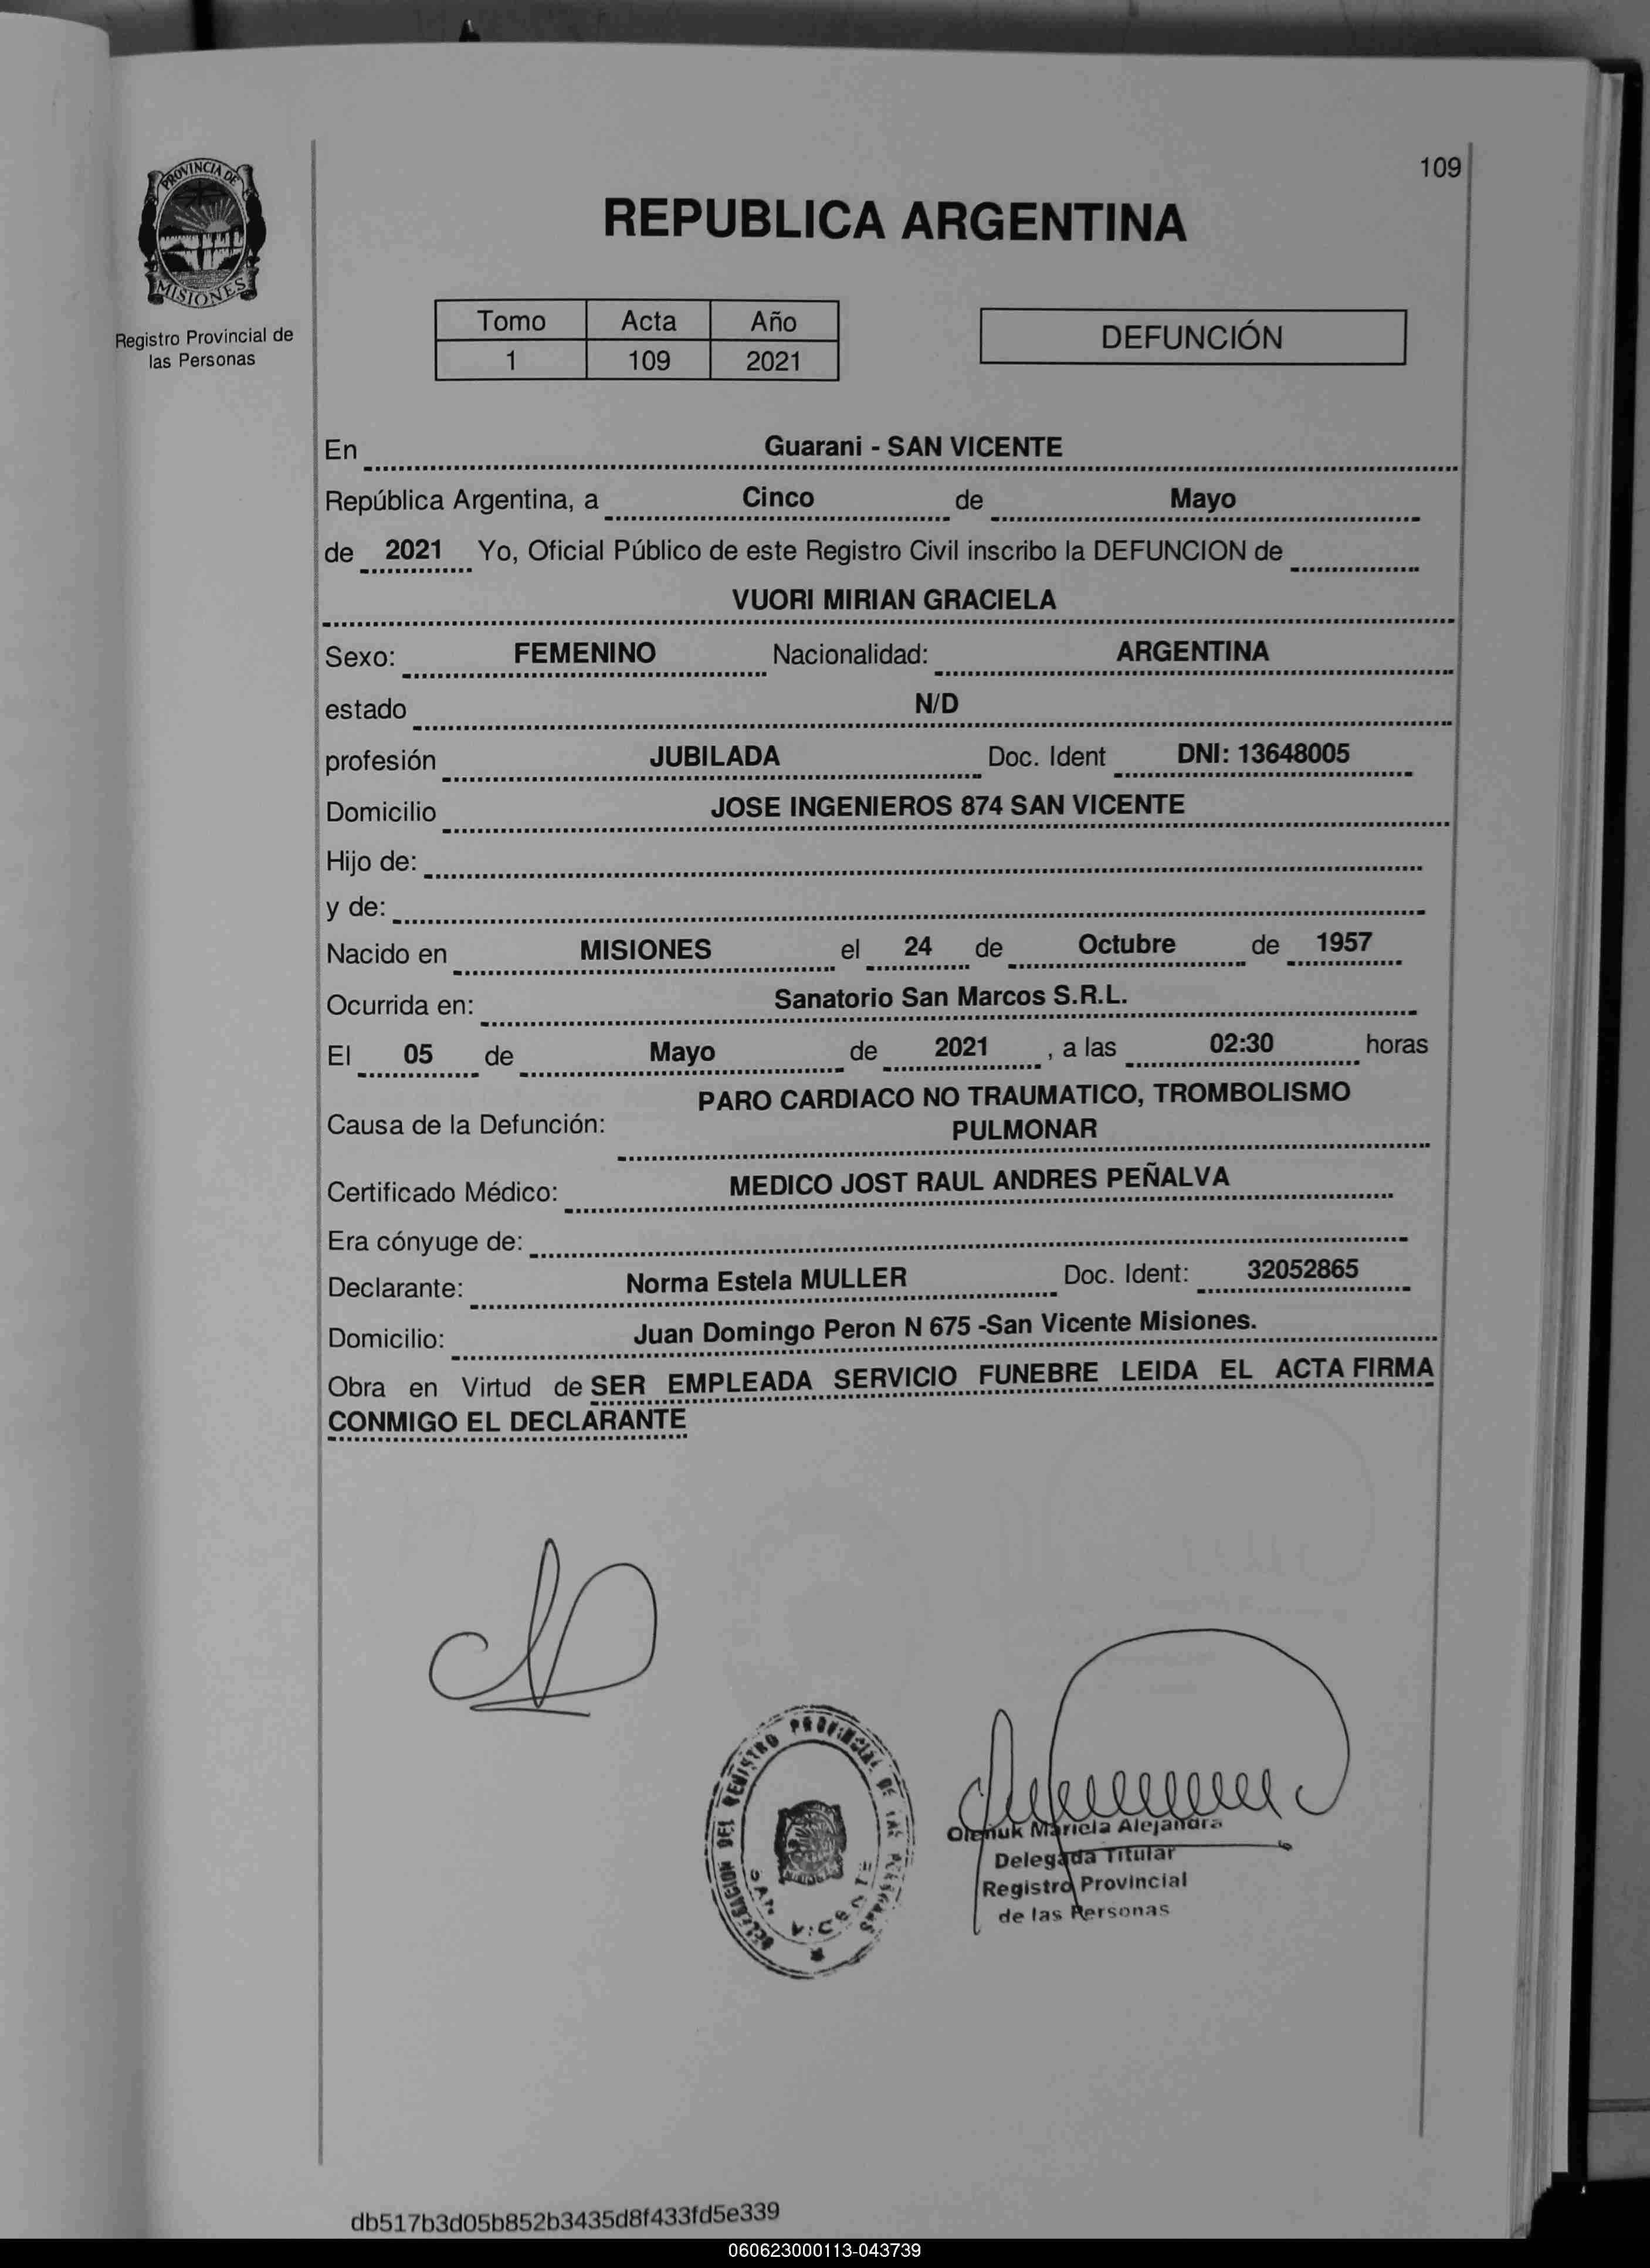 109
PROVINCIA DE
MISIONES
Registro Provincial de
las Personas
REPUBLICA ARGENTINA
Tomo Acta Año
1 109 2021
DEFUNCIÓN
En Guarani - SAN VICENTE
República Argentina, a Cinco de Mayo
de 2021 Yo, Oficial Público de este Registro Civil inscribo la DEFUNCION de
VUORI MIRIAN GRACIELA
Sexo: FEMENINO Nacionalidad: ARGENTINA
estado N/D
profesión JUBILADA Doc. Ident DNI: 13648005
Domicilio JOSE INGENIEROS 874 SAN VICENTE
Hijo de:
y de:
Nacido en MISIONES el 24 de Octubre de 1957
Ocurrida en: Sanatorio San Marcos S.R.L.
El 05 de Mayo de 2021 , a las 02:30 horas
PARO CARDIACO NO TRAUMATICO, TROMBOLISMO
Causa de la Defunción: PULMONAR
Certificado Médico: MEDICO JOST RAUL ANDRES PEÑALVA
Era cónyuge de:
Declarante: Norma Estela MULLER Doc. Ident: 32052865
Domicilio: Juan Domingo Peron N 675 -San Vicente Misiones.
Obra en Virtud de SER EMPLEADA SERVICIO FUNEBRE LEIDA EL ACTA FIRMA
CONMIGO EL DECLARANTE
DELEGACION DEL REGISTRO PROVINCIAL DE LAS PERSONAS
SAN VICENTE
Mariela Alejandra
Delegada Titular
Registro Provincial
de las Personas
db517b3d05b852b3435d8f433fd5e339
060623000113-043739